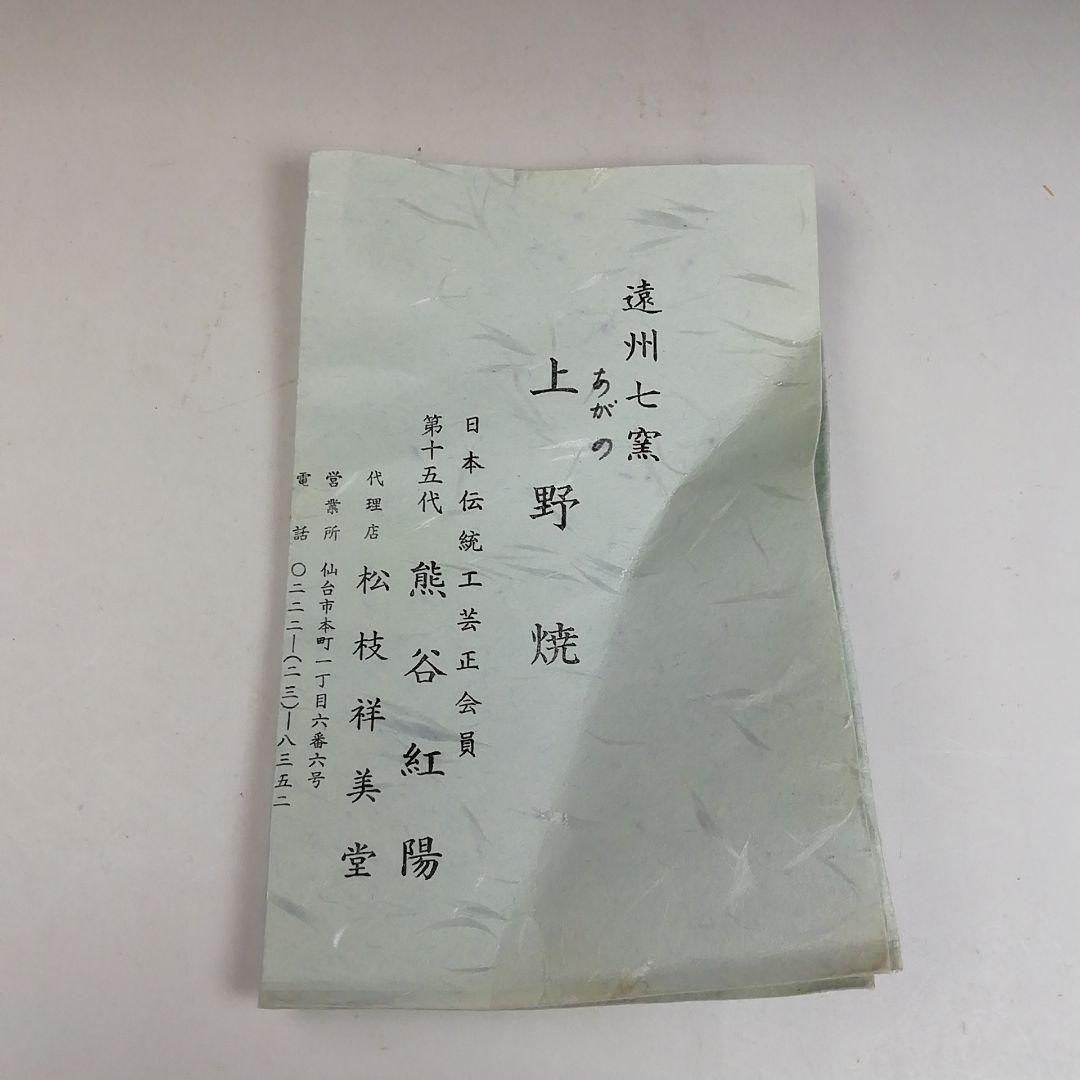 遠州七窯
あがの
上野焼
日本伝統工芸正会員
第十五代 熊谷紅陽
代理店 松枝祥美堂
営業所 仙台市本町一丁目六番六号
電話 〇二二二―(二三)―八三五二